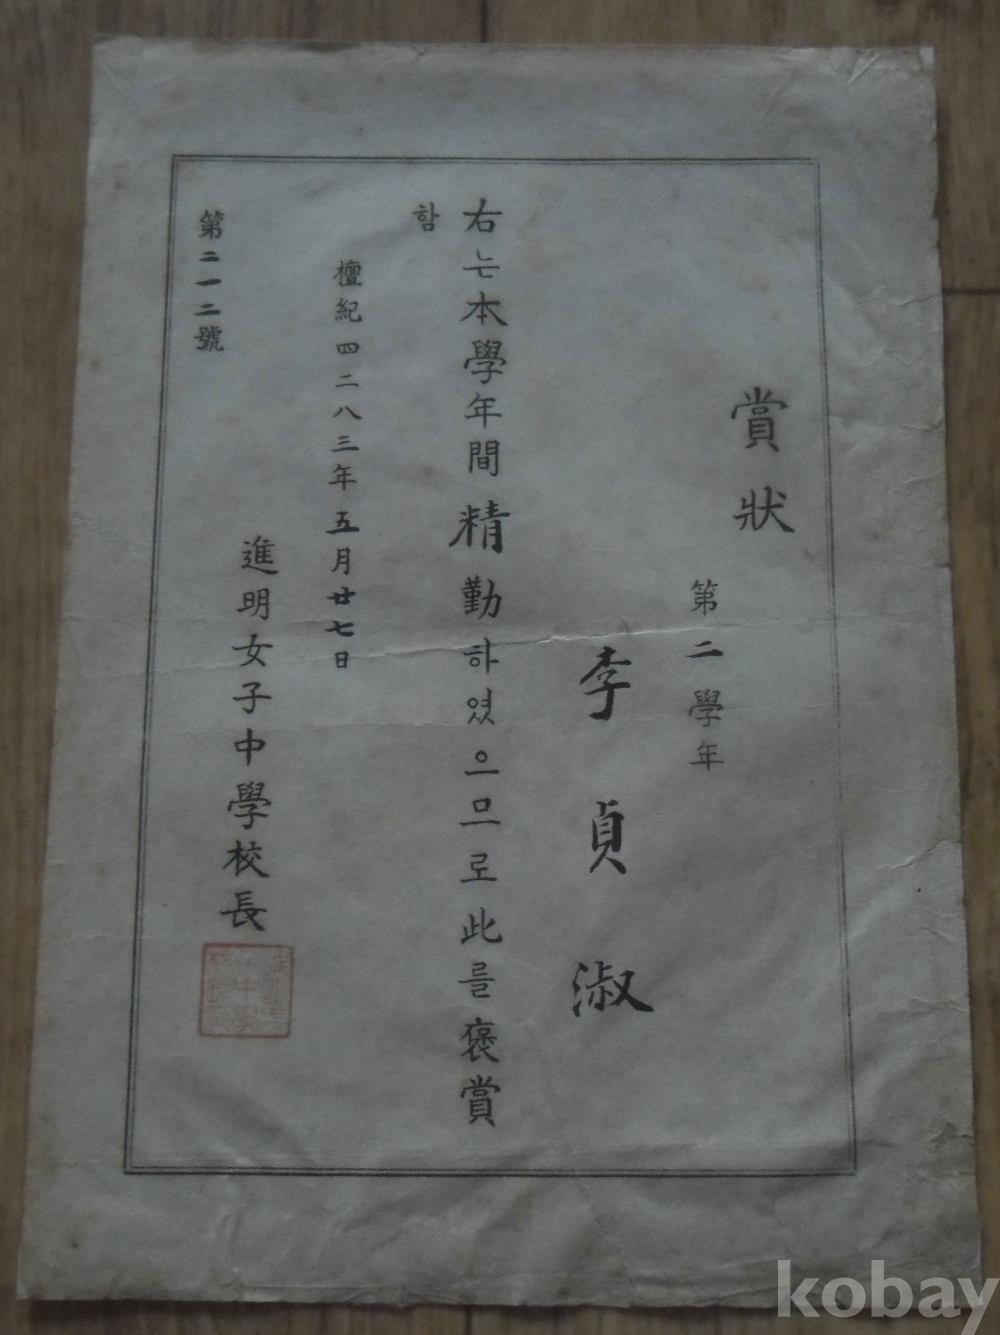 賞狀
第二學年
李貞淑
右는本學年間精勤하였으므로此를褒賞
함
檀紀四二八三年五月廿七日
進明女子中學校長
第二一二號
kobay